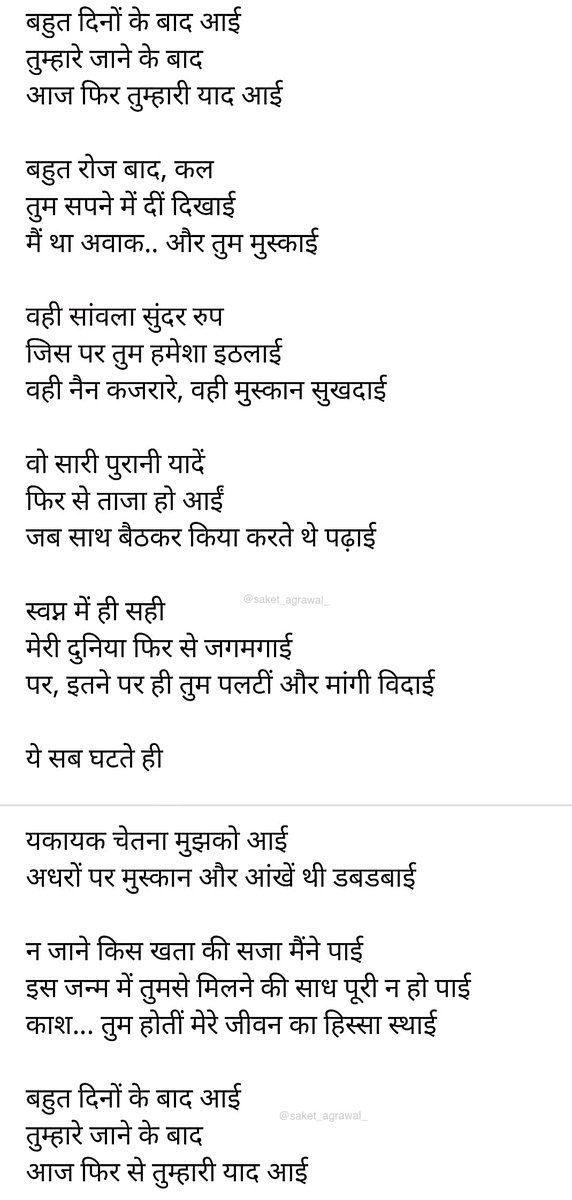 बहुत दिनों के बाद आई
तुम्हारे जाने के बाद
आज फिर तुम्हारी याद आई
बहुत रोज बाद, कल
तुम सपने में दीं दिखाई
मैं था अवाक.. और तुम मुस्काई
वही सांवला सुंदर रुप
जिस पर तुम हमेशा इठलाई
वही नैन कजरारे, वही मुस्कान सुखदाई
वो सारी पुरानी यादें
फिर से ताजा हो आईं
जब साथ बैठकर किया करते थे पढ़ाई
@saket_agrawal_
स्वप्न में ही सही
मेरी दुनिया फिर से जगमगाई
पर, इतने पर ही तुम पलटीं और मांगी विदाई
ये सब घटते ही
यकायक चेतना मुझको आई
अधरों पर मुस्कान और आंखें थी डबडबाई
न जाने किस खता की सजा मैंने पाई
इस जन्म में तुमसे मिलने की साध पूरी न हो पाई
काश... तुम होतीं मेरे जीवन का हिस्सा स्थाई
बहुत दिनों के बाद आई
@saket_agrawal_
तुम्हारे जाने के बाद
आज फिर से तुम्हारी याद आई